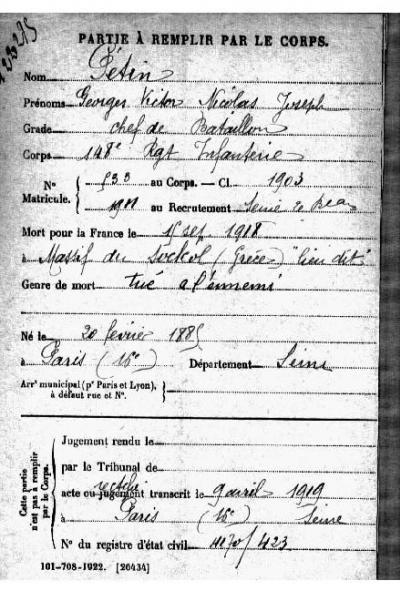 PARTIE À REMPLIR PAR LE CORPS.
Nom Pétin
Prénoms Georges Victor Nicolas Joseph
Grade chef de Bataillon
Corps 148e Rgt Infanterie
N° 533 au Corps. — Cl. 1903
Matricule. au Recrutement Seine
Mort pour la France le 15 sep. 1918
à Massif du Sockol (Grèce) "lieu dit"
Genre de mort tué à l'ennemi
Né le 20 février 1885
à Paris (15e) Département Seine
Arrt municipal (pr Paris et Lyon),
à défaut rue et N°.
Cette partie
n'est pas à remplir
par le Corps.
Jugement rendu le
par le Tribunal de
rectifié
acte ou jugement transcrit le 9 avril 1919
à Paris (15e) Seine
N° du registre d'état civil 423
101-708-1922. [26434]